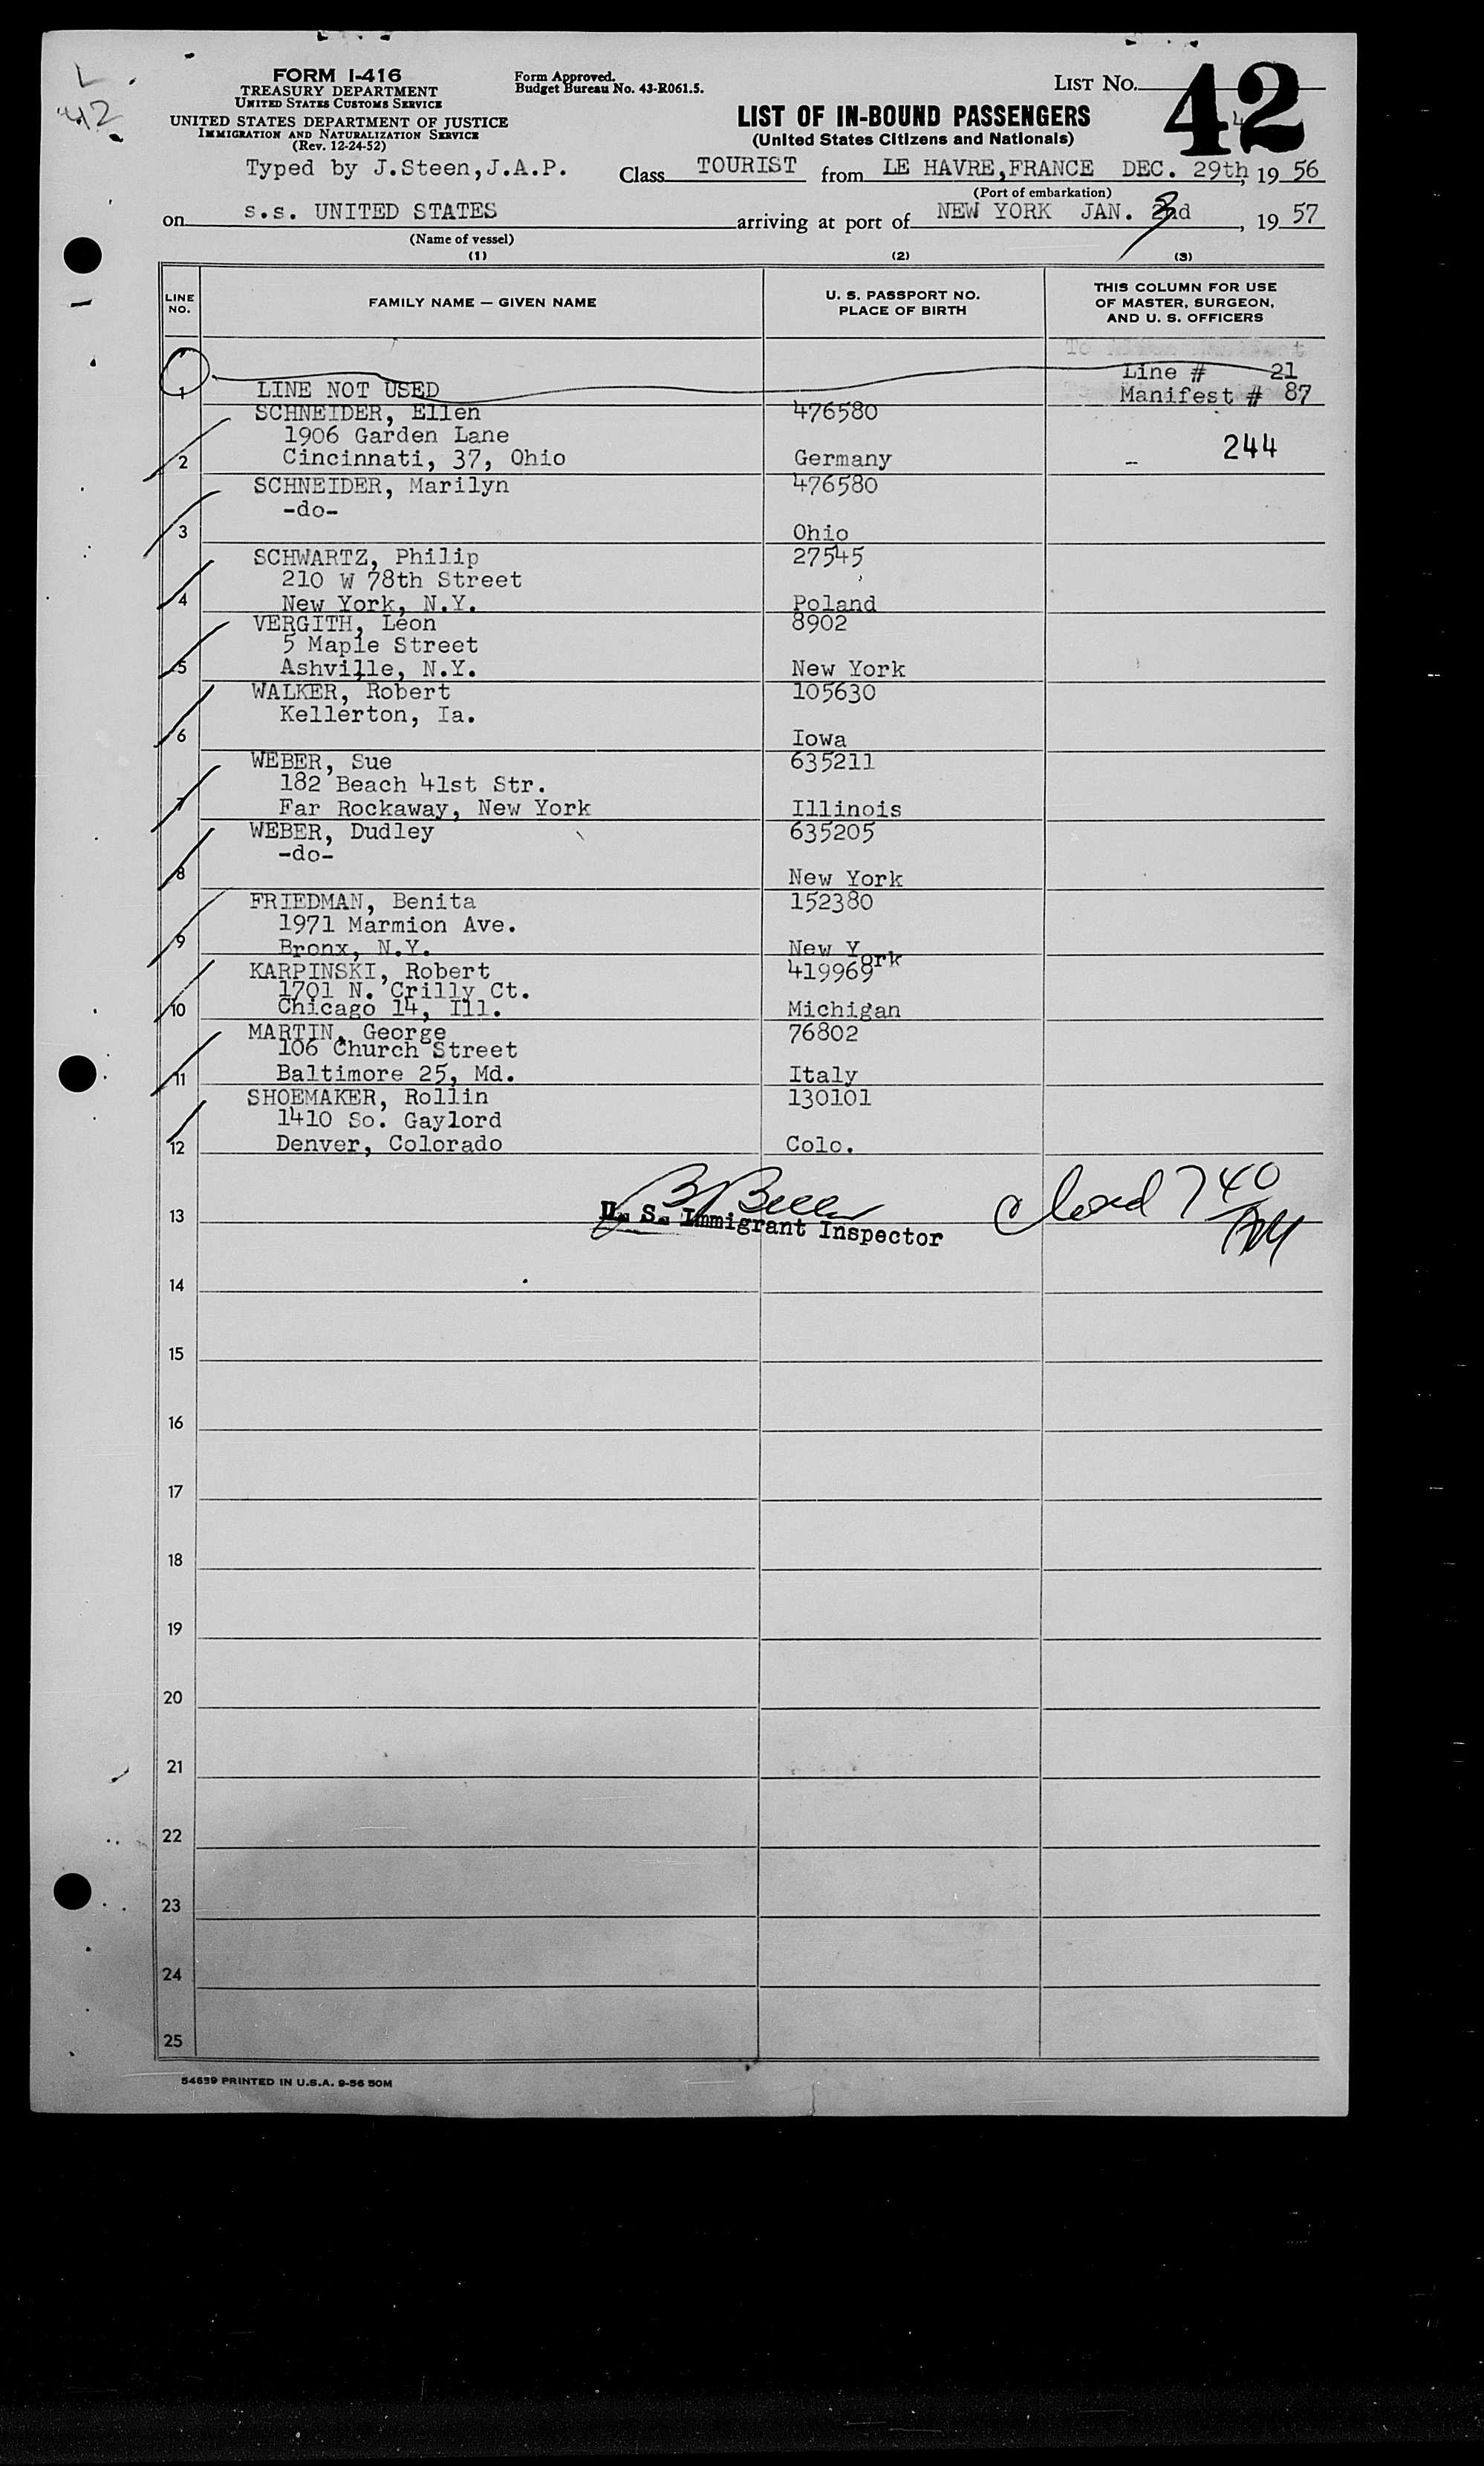 42
FORM I-416
TREASURY DEPARTMENT
UNITED STATES CUSTOMS SERVICE
UNITED STATES DEPARTMENT OF JUSTICE
IMMIGRATION AND NATURALIZATION SERVICE
(Rev. 12-24-52)
Form Approved.
Budget Bureau No. 43-R061.5.
LIST No. 42
LIST OF IN-BOUND PASSENGERS
(United States Citizens and Nationals)
Typed by J.Steen,J.A.P. Class TOURIST from LE HAVRE,FRANCE DEC. 29th, 19 56
(Port of embarkation)
on s.s. UNITED STATES arriving at port of NEW YORK JAN. 3d, 19 57
(Name of vessel)
(1) (2) (3)
LINE NO. FAMILY NAME — GIVEN NAME U. S. PASSPORT NO. PLACE OF BIRTH THIS COLUMN FOR USE OF MASTER, SURGEON, AND U. S. OFFICERS
Line # 21
1 LINE NOT USED Manifest # 87
SCHNEIDER, Ellen 476580
1906 Garden Lane
2 Cincinnati, 37, Ohio Germany - 244
SCHNEIDER, Marilyn 476580
-do-
3 Ohio
SCHWARTZ, Philip 27545
210 W 78th Street
4 New York, N.Y. Poland
VERGITH, Leon 8902
5 Maple Street
5 Ashville, N.Y. New York
WALKER, Robert 105630
Kellerton, Ia.
6 Iowa
WEBER, Sue 635211
182 Beach 41st Str.
7 Far Rockaway, New York Illinois
WEBER, Dudley 635205
-do-
8 New York
FRIEDMAN, Benita 152380
1971 Marmion Ave.
9 Bronx, N.Y. New York
KARPINSKI, Robert 419969
1701 N. Crilly Ct.
10 Chicago 14, Ill. Michigan
MARTIN, George 76802
106 Church Street
11 Baltimore 25, Md. Italy
SHOEMAKER, Rollin 130101
1410 So. Gaylord
12 Denver, Colorado Colo.
13 U. S. Immigrant Inspector closed 740
14
15
16
17
18
19
20
21
22
23
24
25
54639 PRINTED IN U.S.A. 9-56 50M